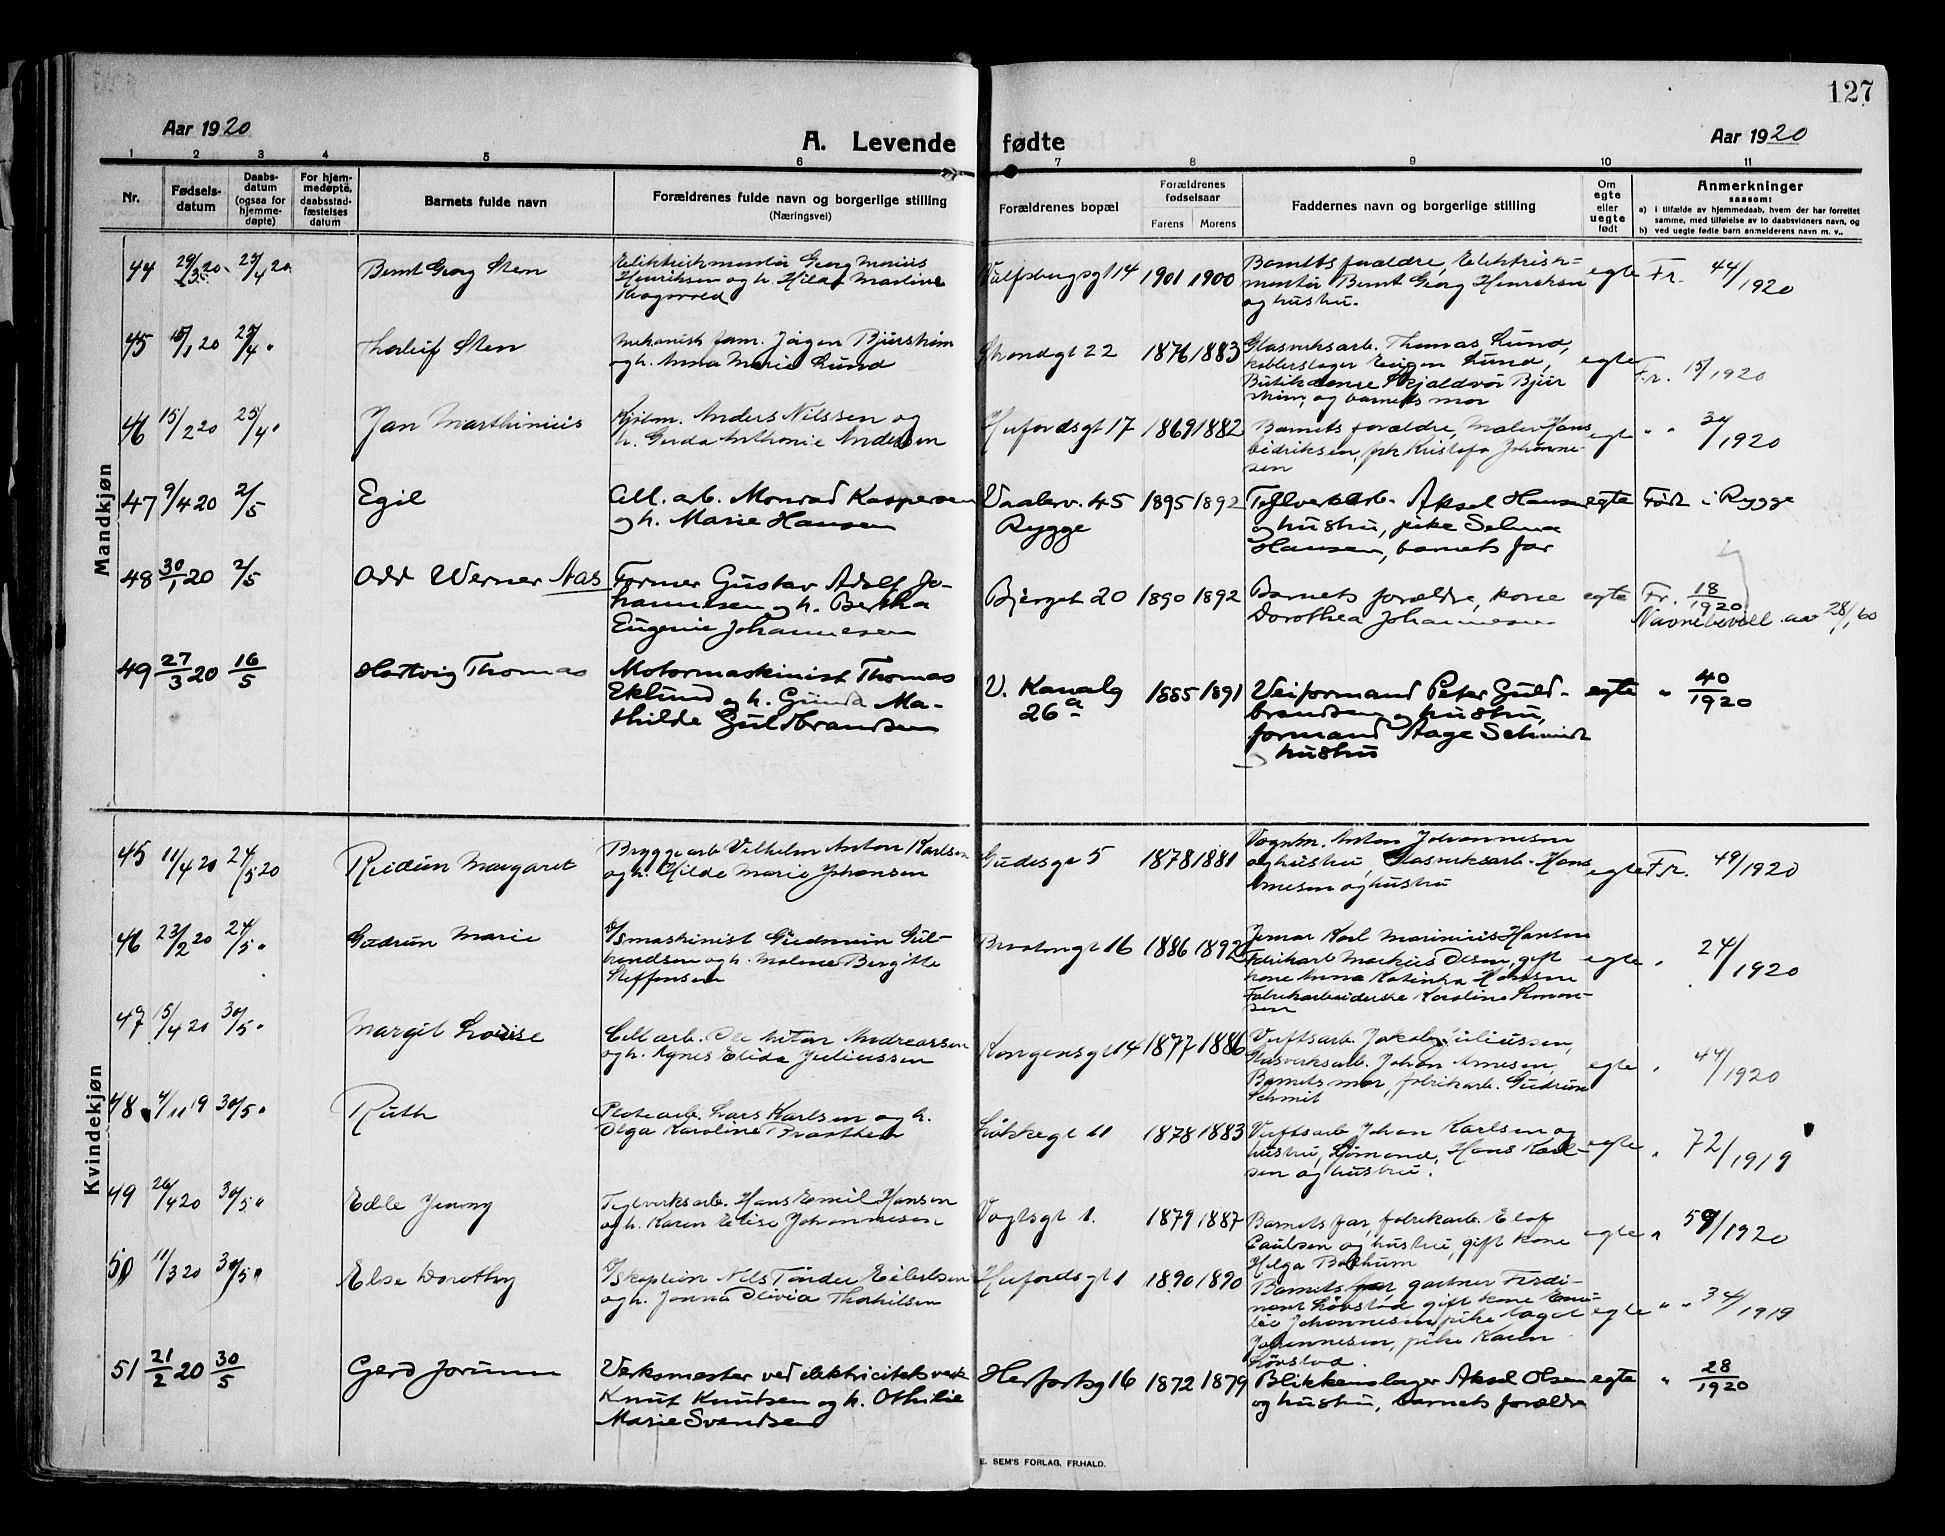 127
Aar 1920
A. Levende fødte
Aar 1920
1 2 3 4 5 6 7 8 9 10 11
Nr.
Fødsels-
datum
Daabs-
datum
(ogsaa for
hjemme-
døpte)
For hjem-
medøpte,
daabsstad-
fæstelses
datum
Barnets fulde navn
Forældrenes fulde navn og borgerlige stilling
(Næringsvei)
Forældrenes bopæl
Forældrenes
fødselsaar
Farens Morens
Faddernes navn og borgerlige stilling
Om
egte
eller
uegte
født
Anmerkninger
saasom:
a) i tilfælde av hjemmedaab, hvem der har forrettet
samme, med tilføielse av to daabsvidners navn, og
b) ved uegte fødte barn anmelderens navn m. v..
Mandkjøn
44 29/3 20 25/4 20
Bernt Georg Sten
Elektriskmontør Georg Marius
Henriksen og h. Hilda Martine
1901 1900
Barnets forældre, Elektrisk-
montør Bernt Georg Henriksen
og hustru.
egte
Fr. 44/1920
45 15/1 20 25/4 "
Thorleif Sten
og h. Anna Marie Lund
Strandgt 22
1876 1883
Glasverksarb. Thomas Lund,
og barnets mor
egte
Fr. 15/1920
46 15/2 20 25/4 "
Jan Marthinius
Anders Nilssen og
h. Gerda Anthonie Andersen
17
1869 1882
Barnets forældre, Maler Hans
egte
" "
/1920
47 9/4 20 2/5
Egil
Cell. arb. Monrad Kaspersen
og h. Marie Hansen
Vaalerv. 45
Rygge
1895 1892
Teglverkarb. Aksel Hansen
og hustru, pike Selma
Hansen, barnets far
egte
Født i Rygge
48 30/1 20 2/5
Odd Werner Aas
Former Gustav Adolf Jo-
hannesen og h. Bertha
Eugenie Johannesen
Bjerget 20
1890 1892
Barnets forældre, kone
Dorothea Johannesen
egte
Fr. 18/1920
Navnebevill. av 28/1 60
49 27/3 20 16/5
Hartvig Thomas
Motormaskinist Thomas
Eklund og h. Gunda Ma-
thilde Guldbrandsen
V. Kanalg
26 a
1885 1891
Veiformand Peter Guld-
brandsen og hustru,
formand Aage Schmidt
hustru
egte
" 40/1920
Kvindekjøn
45 11/4 20 24/5 20
Reidun Margaret
Bryggearb Vilhelm Anton Karlsen
og h. Hilda Marie Johansen
Gudesgt 5
1878 1881
Vognm. Anton Johannesen
og hustru, Glasverksarb. Hans
Arnesen og hustru
egte
Fr. 49/1920
46 23/2 20 24/5 "
Gudrun Marie
D/Smaskinist Gudmun Gul-
brandsen og h. Malene Bergitte
Steffensen
16
1886 1892
Karl Marinius Hansen
Markus Olsen, gift
kone Anna Katinka Hansen
Fabrikarbeiderske Karoline Simon-
sen
egte
" 24/1920
47 5/4 20 30/5 "
Margit Lovise
Cell arb. Ole Anton Andreassen
og h. Agnes Elida Juliussen
Kongensgt 14
1877 1886
Verftsarb. Jakob Juliussen,
Glasverksarb. Johan Arnesen,
Barnets mor, fabrikarb. Gudrun
Schmit
egte
" 44/1920
48 4/11 19 30/5 "
Ruth
Platearb. Lars Karlsen og h.
Olga Karoline Braathen
Løkkegt 11
1878 1883
Verftsarb Johan Karlsen og
hustru, Sømand, Hans Karl-
sen og hustru.
egte
" 72/1919
49 26/4 20 30/5 "
Edle Jenny
Teglverksarb. Hans Emil Hansen
og h. Karen Elise Johannesen
Vogtsgt 1.
1879 1887
Barnets far, fabrikarb. Elof
Paulsen og hustru, gift kone
Helga
egte
" 59/1920
50 11/3 20 30/5 "
Else Dorothy
D/Skaptein Nils Tønder Eilertsen
og h. Janna Olivia Thorkilsen
1
1890 1890
Barnets far, gartner Ferdi-
nant Løvstad gift kone Emi-
lie Johannesen, pike Dagot
Johannesen, pike Karen
Løvstad.
egte
" " 34/1919
51 21/2 20 30/5
Gerd Jorunn
Verksmester ved elektricitetsverk
Knut Knutsen og h. Othilie
Marie Svendsen
Herfordsg 16
1872 1879
Blikkenslager Aksel Olsen
og hustru, barnets forældre
egte
" 28/1920
E. SEM'S FORLAG, FR.HALD.